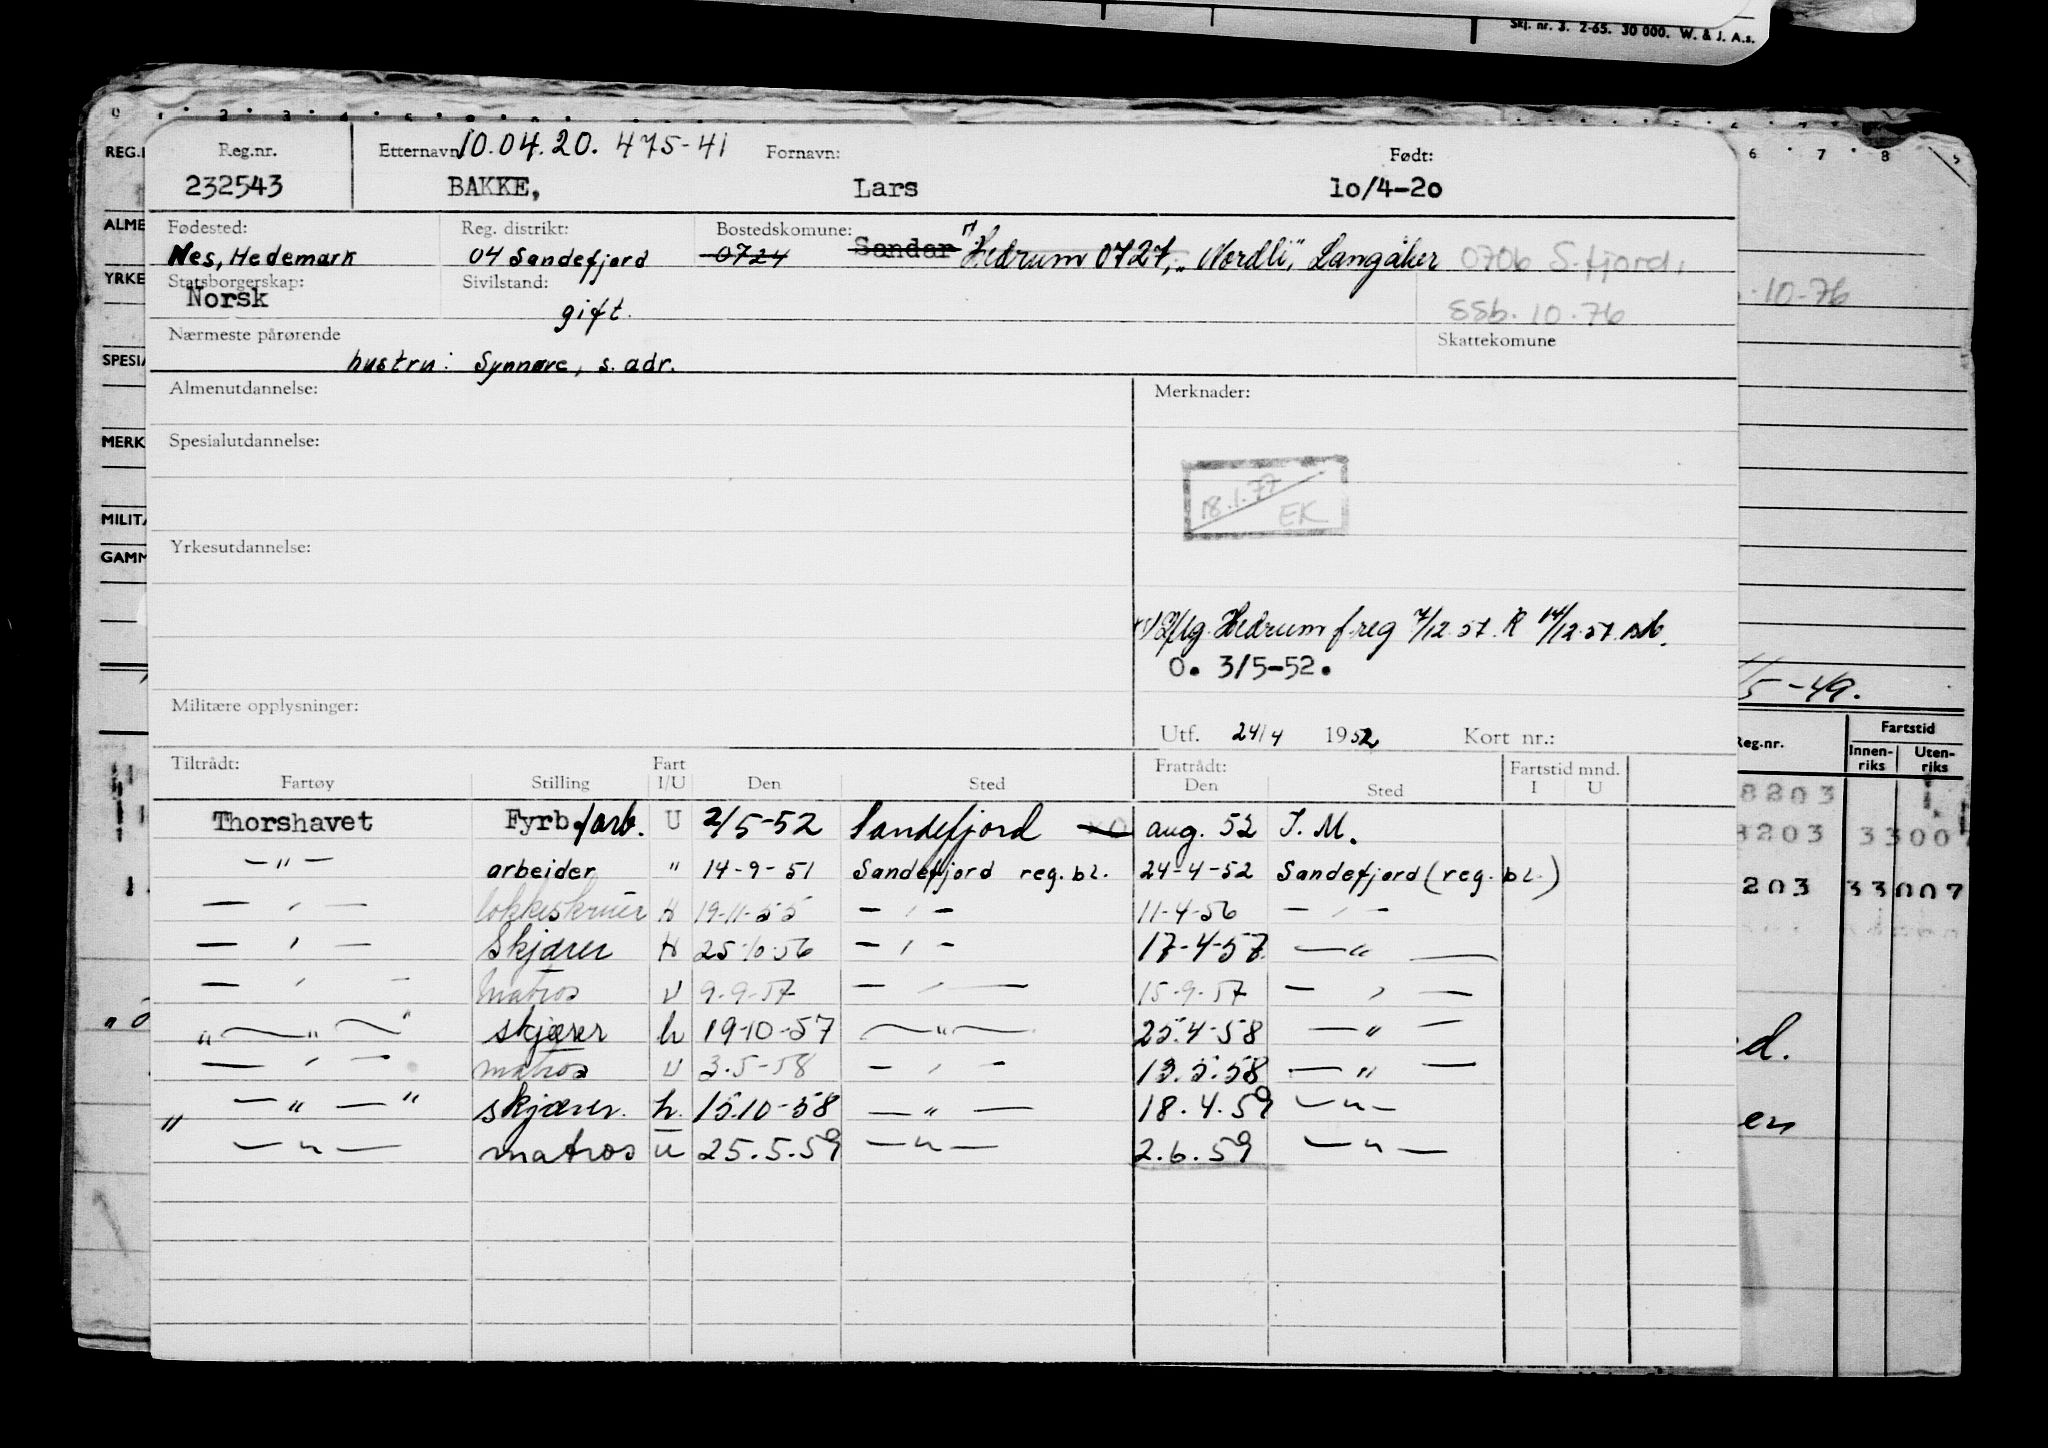 Skj. nr. 3. 2-65. 30 000. W. & J. A.s.
Reg.nr. Etternavn 10.04.20. 475-41 Fornavn: Født:
232543 BAKKE, Lars 10/4-20
Fødested: Reg. distrikt: Bostedskomune:
Nes, Hedemark 04 Sandefjord 0724 Sandar Hedrum 0727, "Nordli", Langåker 0706 S.fjord,
Statsborgerskap: Norsk Sivilstand: gift. SSb. 10.76
10-76
Nærmeste pårørende Skattekomune
hustru: Synnøve, s. adr.
Almenutdannelse: Merknader:
Spesialutdannelse:
18.1.77 EK
Yrkesutdannelse:
Hedrum f.reg 7/12.57. R 14/12.57.
O. 3/5-52.
/5-49.
Militære opplysninger:
Utf. 24/4 1952 Kort nr.:
Tiltrådt: Fart Fratrådt: Fartstid mnd.
Fartøy Stilling I/U Den Sted Den Sted I U
Thorshavet Fyrb./arb. U 2/5-52 Sandefjord aug. 52 J. M.
— " — arbeider " 14-9-51 Sandefjord reg. bl. 24-4-52 Sandefjord (reg. bl.)
— " — kokkeskruer H 19-11-55 — " — 11-4-56 — " —
— " — Skjærer H 25-10-56 — " — 17-4-57 — " —
— " — Matros U 9-9-57 — " — 15-9-57 — " —
" — " — " skjærer h 19-10-57 — " — 25.4-58 — " —
— " — matros U 3-5-58 — " — 13.5.58 — " —
" — " — " skjærer. h. 15.10-58 — " — 18.4.59 — " —
— " — matros u 25.5.59 — " — 2.6.59 — " —
REG.
ALME
YRKE
SPESIA
MERK
MILITÆ
GAMM
Reg.nr. Fartstid
Innen-riks Uten-riks
8203
8203 3300
203 33007